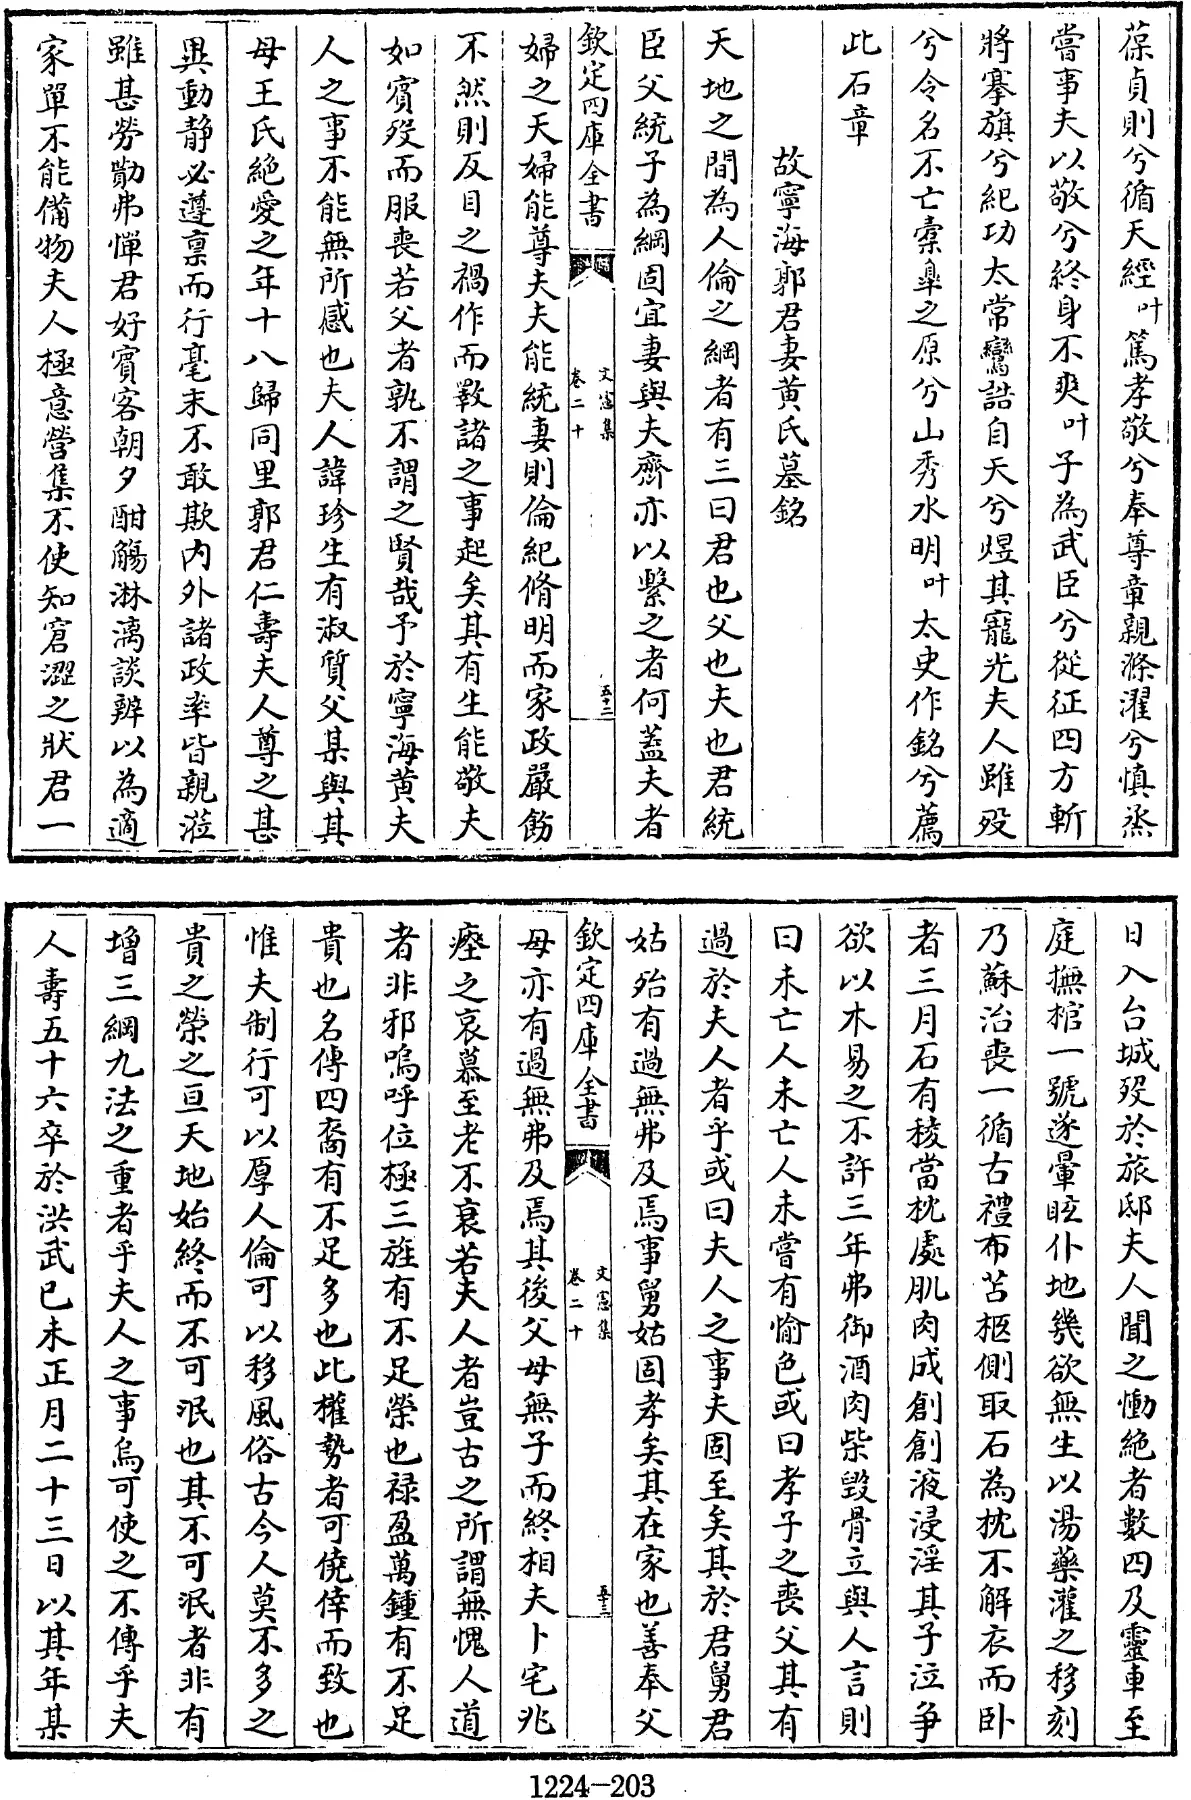 葆貞則兮循天經叶篤孝敬兮奉尊章親滌濯兮慎烝
嘗事夫以敬兮終身不爽叶子為武臣兮從征四方斬
將搴旗兮紀功太常鸞誥自天兮煜其寵光夫人雖殁
兮令名不亡橐臯之原兮山秀水明叶太史作銘兮薦
此石章
故寧海郭君妻黄氏墓銘
天地之間為人倫之綱者有三曰君也父也夫也君統
臣父統子為綱固宜妻與夫齊亦以繫之者何葢夫者
欽定四庫全書
文憲集
卷二十
五十二
婦之天婦能尊夫夫能統妻則倫紀脩明而家政嚴飭
不然則反目之禍作而斁諸之事起矣其有生能敬夫
如賓殁而服喪若父者孰不謂之賢哉予於寧海黄夫
人之事不能無所感也夫人諱珍生有淑質父某與其
母王氏絶愛之年十八歸同里郭君仁壽夫人尊之甚
異動静必遵禀而行毫末不敢欺内外諸政率皆親涖
雖甚勞勩弗憚君好賓客朝夕酣觴淋漓談辨以為適
家單不能備物夫人極意營集不使知窘澀之狀君一
日入台城殁於旅邸夫人聞之慟絶者數四及靈車至
庭撫棺一號遂暈眩仆地幾欲無生以湯藥灌之移刻
乃蘇治喪一循古禮布苫柩側取石為枕不解衣而卧
者三月石有稜當枕處肌肉成創創液浸淫其子泣爭
欲以木易之不許三年弗御酒肉柴毁骨立與人言則
曰未亡人未亡人未嘗有愉色或曰孝子之喪父其有
過於夫人者乎或曰夫人之事夫固至矣其於君舅君
姑殆有過無弗及焉事舅姑固孝矣其在家也善奉父
欽定四庫全書
文憲集
卷二十
五十三
母亦有過無弗及焉其後父母無子而終相夫卜宅兆
瘞之哀慕至老不衰若夫人者豈古之所謂無愧人道
者非邪嗚呼位極三旌有不足榮也禄盈萬鍾有不足
貴也名傳四裔有不足多也此權勢者可僥倖而致也
惟夫制行可以厚人倫可以移風俗古今人莫不多之
貴之榮之亘天地始終而不可泯也其不可泯者非有
增三綱九法之重者乎夫人之事烏可使之不傳乎夫
人壽五十六卒於洪武己未正月二十三日以其年某
1224-203